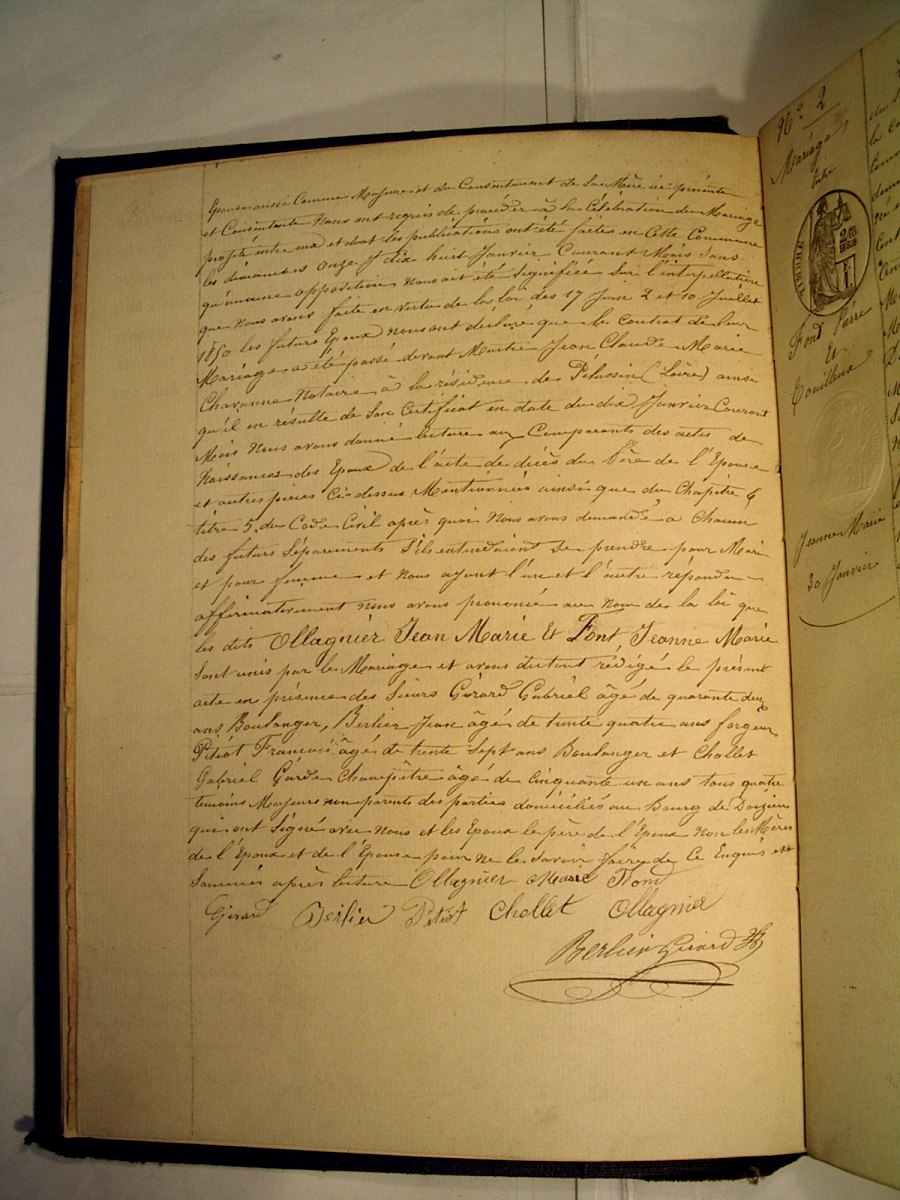 Epouse aussi Comme Majeure et du Consentement de Sa Mère ici présente
et Consentante Nous ont requis de procéder à la Célébration du Mariage
projeté entre eux et dont les publications ont été faites en Cette Commune
les dimanches onze et dix huit Janvier Courant Mois Sans
qu'aucune opposition Nous ait été Signifiée Sur l'interpellation
que Nous avons faite en vertu de la loi des 17 Juin 2 et 10 Juillet
1850 les futurs Epoux nous ont déclaré que le Contrat de leur
Mariage a été passé devant Maitre Jean Claude Marie
Chavanne Notaire à la résidence de Pélussin (Loire) ainsi
qu'il en résulte de Son Certificat en date du dix Janvier Courant
Mois Nous avons donné lecture aux Comparants des actes de
Naissances des Epoux de l'acte de décès du Père de l'Epouse
et autres pièces Ci dessus Mentionnées ainsi que du Chapitre 6
titre 5 du Code Civil après quoi Nous avons demandé à Chacun
des futurs Séparements S'ils entendaient Se prendre pour Mari
et pour femme et Nous ayant l'un et l'autre répondu
affirmativement nous avons prononcé au Nom de la loi que
les dits Ollagnier Jean Marie Et Font Jeanne Marie
Sont unis par le Mariage et avons du tout rédigé le présent
acte en présence des Sieurs Girard Gabriel âgé de quarante deux
ans Boulanger, Berlier Jean âgé de trente quatre ans forgeur
Pitiot François âgé de trente Sept ans Boulanger et Chollet
Gabriel Garde Champêtre âgé de Cinquante un ans tous quatre
temoins Majeurs non parents des parties domiciliés au Bourg de Doizieu
qui ont Signé avec Nous et les Epoux le père de l'Epoux Non les Mères
de l'Epoux et de l'Epouse pour ne le Savoir faire de Ce Enquis et
Sommés après lecture Ollagnier Marie Fond
Girard Berlier Pitiot Chollet Ollagnier
Berlier Girard
N° 2
Mariage
Entre
TIMBRE
Font Père
Et
Couilleux
Jeanne Marie
30 Janvier